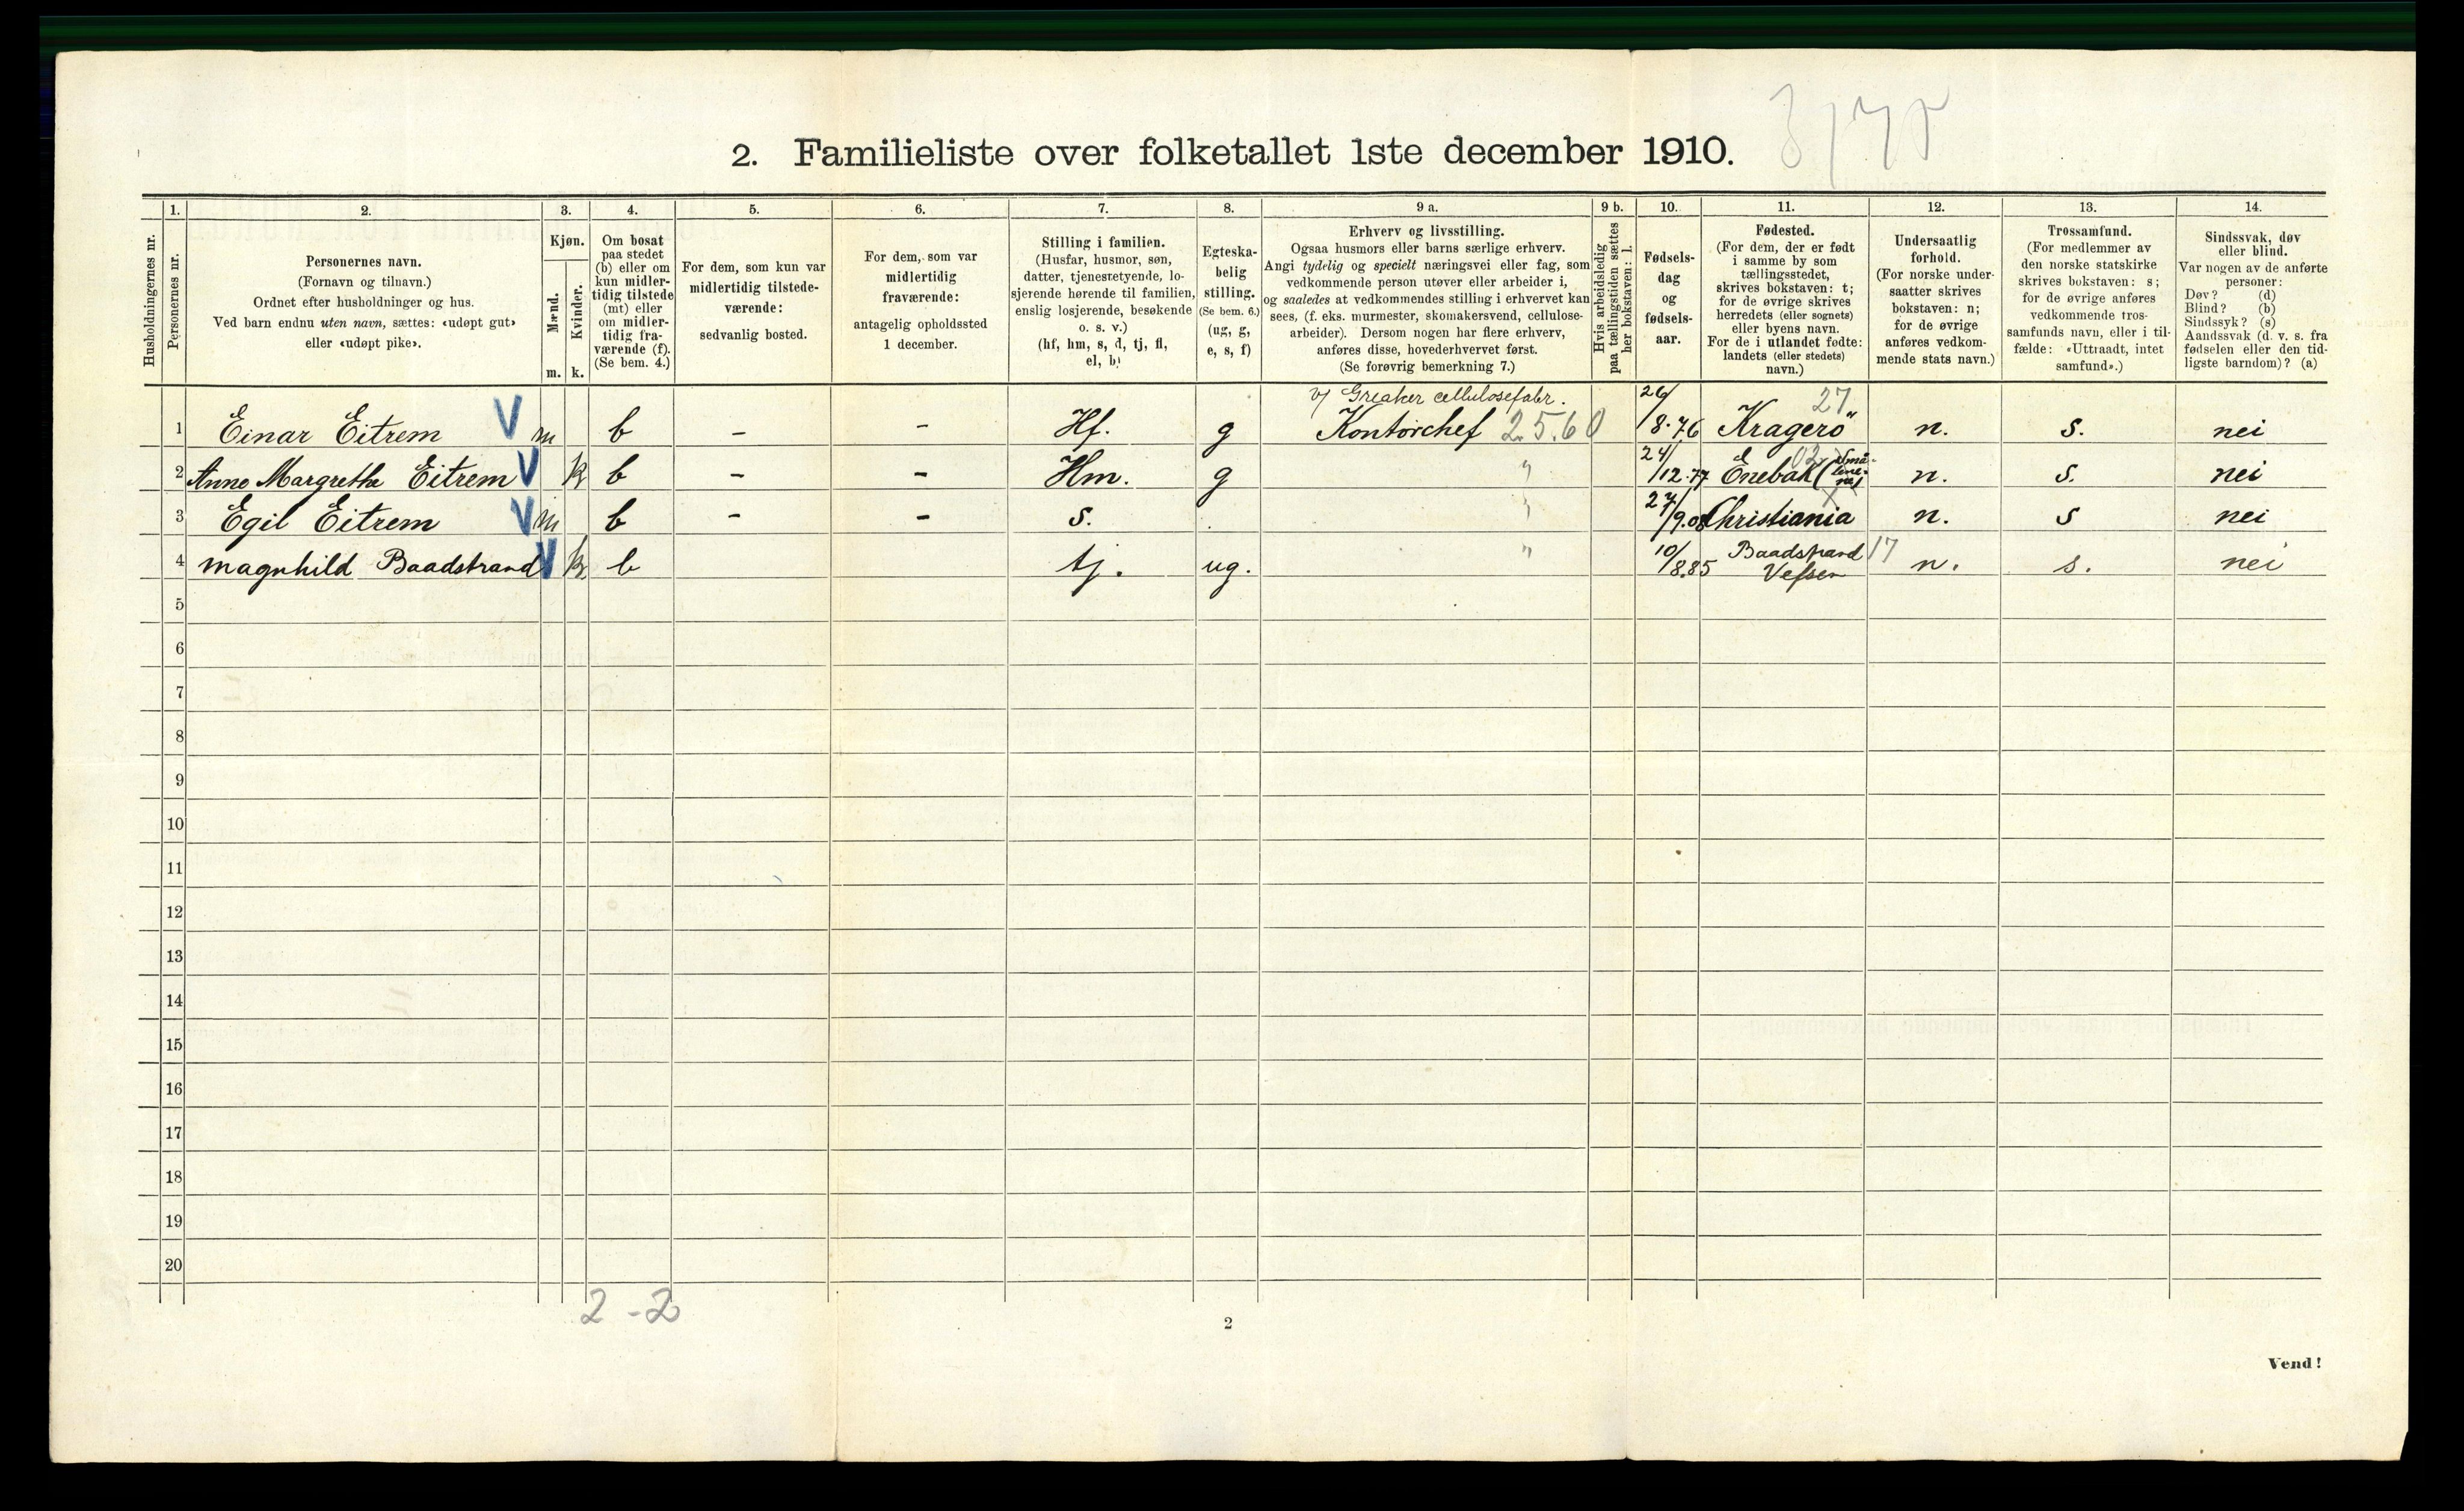 2. Familieliste over folketallet 1ste december 1910.
1. 2. 3. 4. 5. 6. 7. 8. 9 a. 9 b. 10. 11. 12. 13. 14.
Husholdningernes nr.
Personernes nr.
Personernes navn.
(Fornavn og tilnavn.)
Ordnet efter husholdninger og hus.
Ved barn endnu uten navn, sættes: «udøpt gut»
eller «udøpt pike».
Kjøn.
Mænd.
Kvinder.
m. k.
Om bosat
paa stedet
(b) eller om
kun midler-
tidig tilstede
(mt) eller
om midler-
tidig fra-
værende (f).
(Se bem. 4.)
For dem, som kun var
midlertidig tilstede-
værende:
sedvanlig bosted.
For dem, som var
midlertidig
fraværende:
antagelig opholdssted
1 december.
Stilling i familien.
(Husfar, husmor, søn,
datter, tjenestetyende, lo-
sjerende hørende til familien,
enslig losjerende, besøkende
o. s. v.)
(hf, hm, s, d, tj, fl,
el, b)
Egteska-
belig
stilling.
(Se bem. 6.)
(ug, g,
e, s, f)
Erhverv og livsstilling.
Ogsaa husmors eller barns særlige erhverv.
Angi tydelig og specielt næringsvei eller fag, som
vedkommende person utøver eller arbeider i,
og saaledes at vedkommendes stilling i erhvervet kan
sees, (f. eks. murmester, skomakersvend, cellulose-
arbeider). Dersom nogen har flere erhverv,
anføres disse, hovederhvervet først.
(Se forøvrig bemerkning 7.)
Hvis arbeidsledig
paa tællingstiden sættes
her bokstaven: l.
Fødsels-
dag
og
fødsels-
aar.
Fødested.
(For dem, der er født
i samme by som
tællingsstedet,
skrives bokstaven: t;
for de øvrige skrives
herredets (eller sognets)
eller byens navn.
For de i utlandet fødte:
landets (eller stedets)
navn.)
Undersaatlig
forhold.
(For norske under-
saatter skrives
bokstaven: n;
for de øvrige
anføres vedkom-
mende stats navn.)
Trossamfund.
(For medlemmer av
den norske statskirke
skrives bokstaven: s;
for de øvrige anføres
vedkommende tros-
samfunds navn, eller i til-
fælde: «Uttraadt, intet
samfund».)
Sindssvak, døv
eller blind.
Var nogen av de anførte
personer:
Døv? (d)
Blind? (b)
Sindssyk? (s)
Aandssvak (d. v. s. fra
fødselen eller den tid-
ligste barndom)? (a)
v/ Greaker cellulosefabr. 27
1 Einar Eitrem V m b - - Hf. g Kontorchef 2.5.60 26/8.76 Kragerö n. s. nei
2 Anne Margrethe Eitrem V k b - - Hm. g " 24/12.77 Enebak (Smålenene) 02 n. s. nei
3 Egil Eitrem V m b - - s. " 27/9.08 Christiania X n. s nei
4 Magnhild Baadstrand V k b tj. ug. " 10/8.85 Baadstrand Vefsen 17 n. s. nei
5
6
7
8
9
10
11
12
13
14
15
16
17
18
19
20
2 - 2
2
Vend!